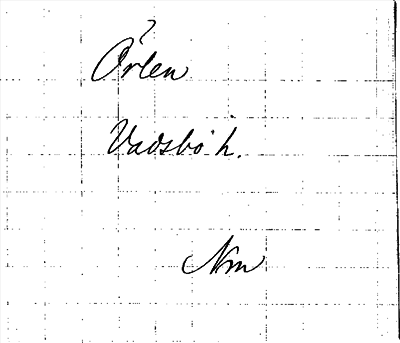 ?
Örlen
Vadsbo h.
Nm